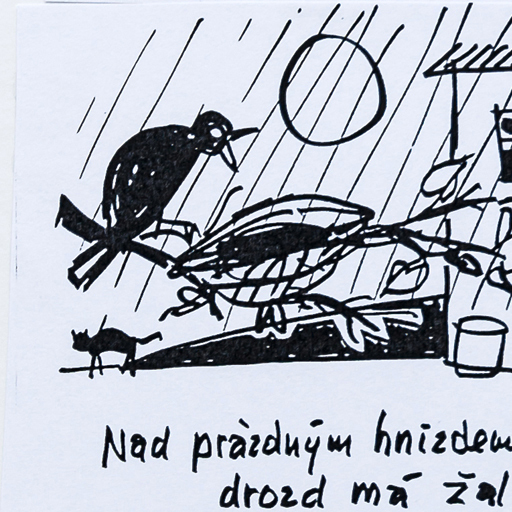 Nad pràzdným hnizdem
drozd má žal